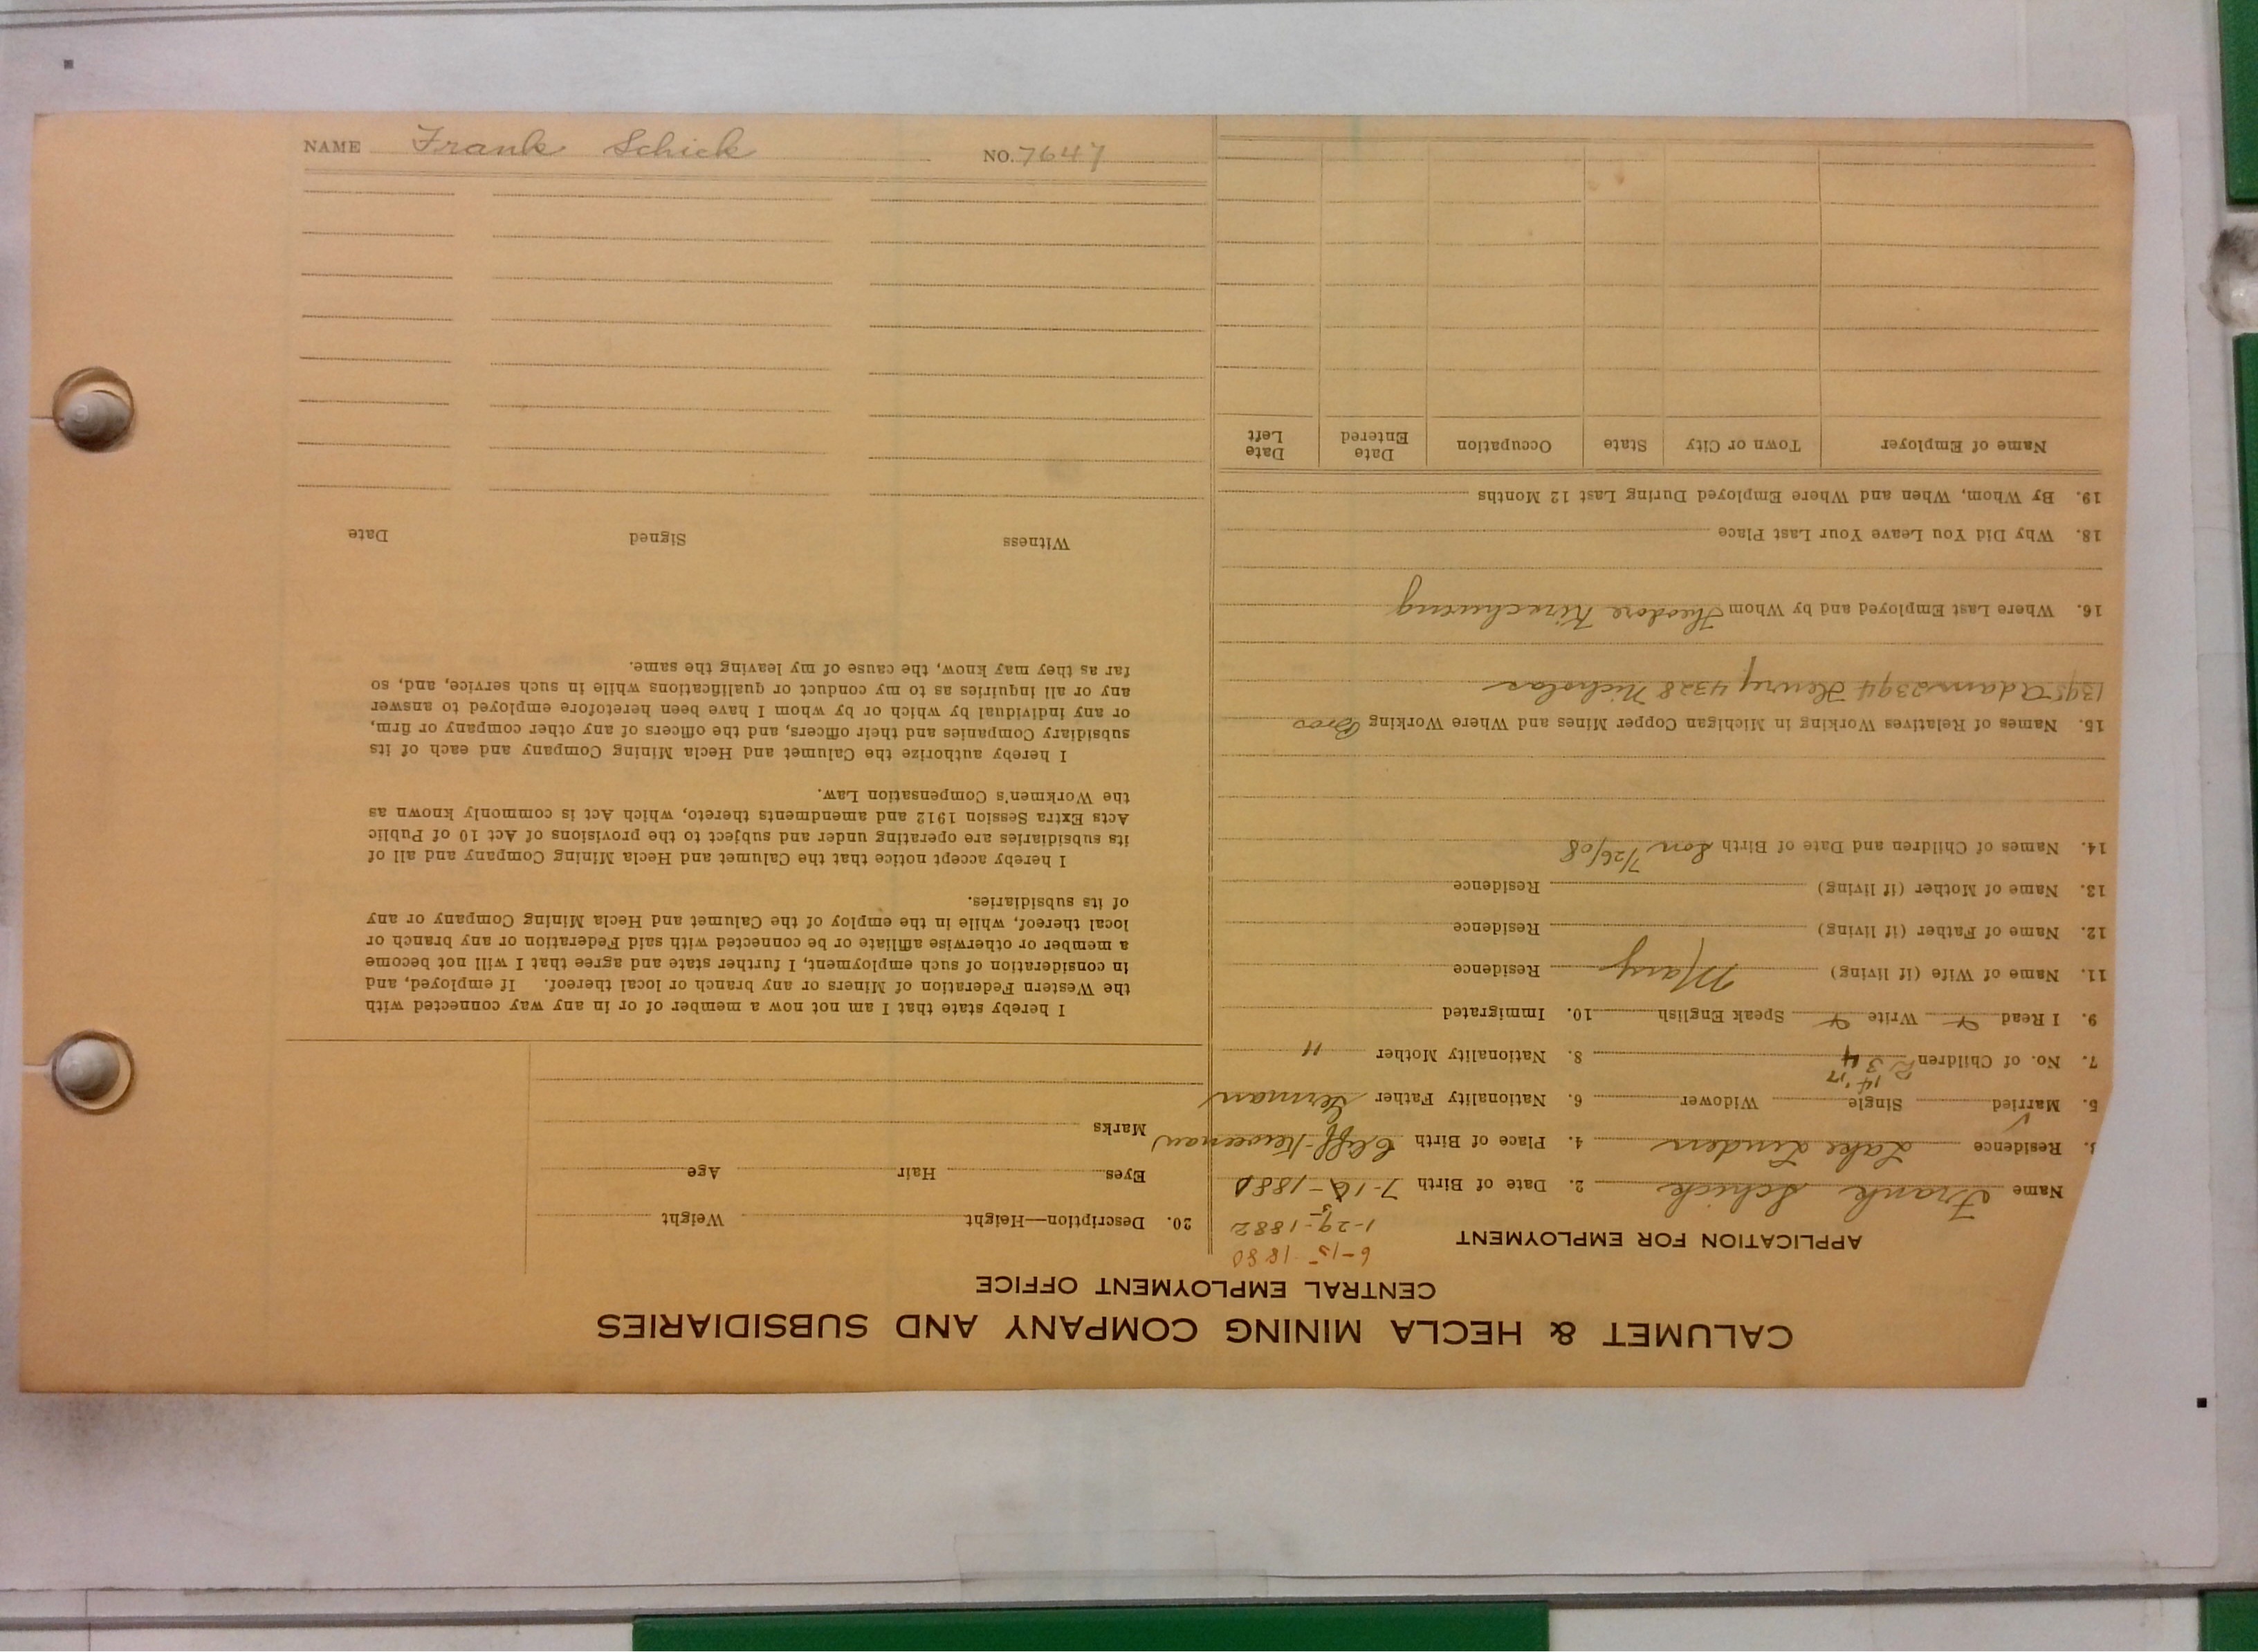 CALUMET & HECLA MINING COMPANY AND SUBSIDIARIES
CENTRAL EMPLOYMENT OFFICE
APPLICATION FOR EMPLOYMENT
6-15-1880
1-29-1882
Name Frank Schick 2. Date of Birth 7-16-1881
3. Residence Lake Linden 4. Place of Birth Cliff-Keweenaw
5. Married Single Widower 6. Nationality Father German
14 '17
7. No. of Children 3 4 8. Nationality Mother "
9. I Read Write Speak English 10. Immigrated
11. Name of Wife (if living) Mary Residence
12. Name of Father (if living) Residence
13. Name of Mother (if living) Residence
14. Names of Children and Date of Birth Son 7/26/08
15. Names of Relatives Working in Michigan Copper Mines and Where Working Bros
1395 Adam 2394 Henry 4328 Nicholas
16. Where Last Employed and by Whom Theodore Kirschweng
18. Why Did You Leave Your Last Place
19. By Whom, When and Where Employed During Last 12 Months
Name of Employer Town or City State Occupation Date Entered Date Left
20. Description—Height Weight
Eyes Hair Age
Marks
I hereby state that I am not now a member of or in any way connected with
the Western Federation of Miners or any branch or local thereof. If employed, and
in consideration of such employment, I further state and agree that I will not become
a member or otherwise affiliate or be connected with said Federation or any branch or
local thereof, while in the employ of the Calumet and Hecla Mining Company or any
of its subsidiaries.
I hereby accept notice that the Calumet and Hecla Mining Company and all of
its subsidiaries are operating under and subject to the provisions of Act 10 of Public
Acts Extra Session 1912 and amendments thereto, which Act is commonly known as
the Workmen's Compensation Law.
I hereby authorize the Calumet and Hecla Mining Company and each of its
subsidiary Companies and their officers, and the officers of any other company or firm,
or any individual by which or by whom I have been heretofore employed to answer
any or all inquiries as to my conduct or qualifications while in such service, and, so
far as they may know, the cause of my leaving the same.
Witness Signed Date
NAME Frank Schick NO. 7647